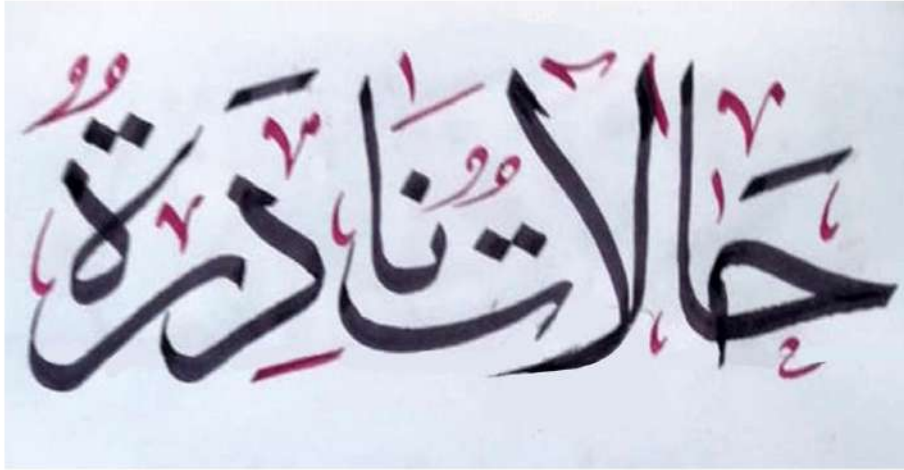 حَالَاتٌ نَادِرَةٌ